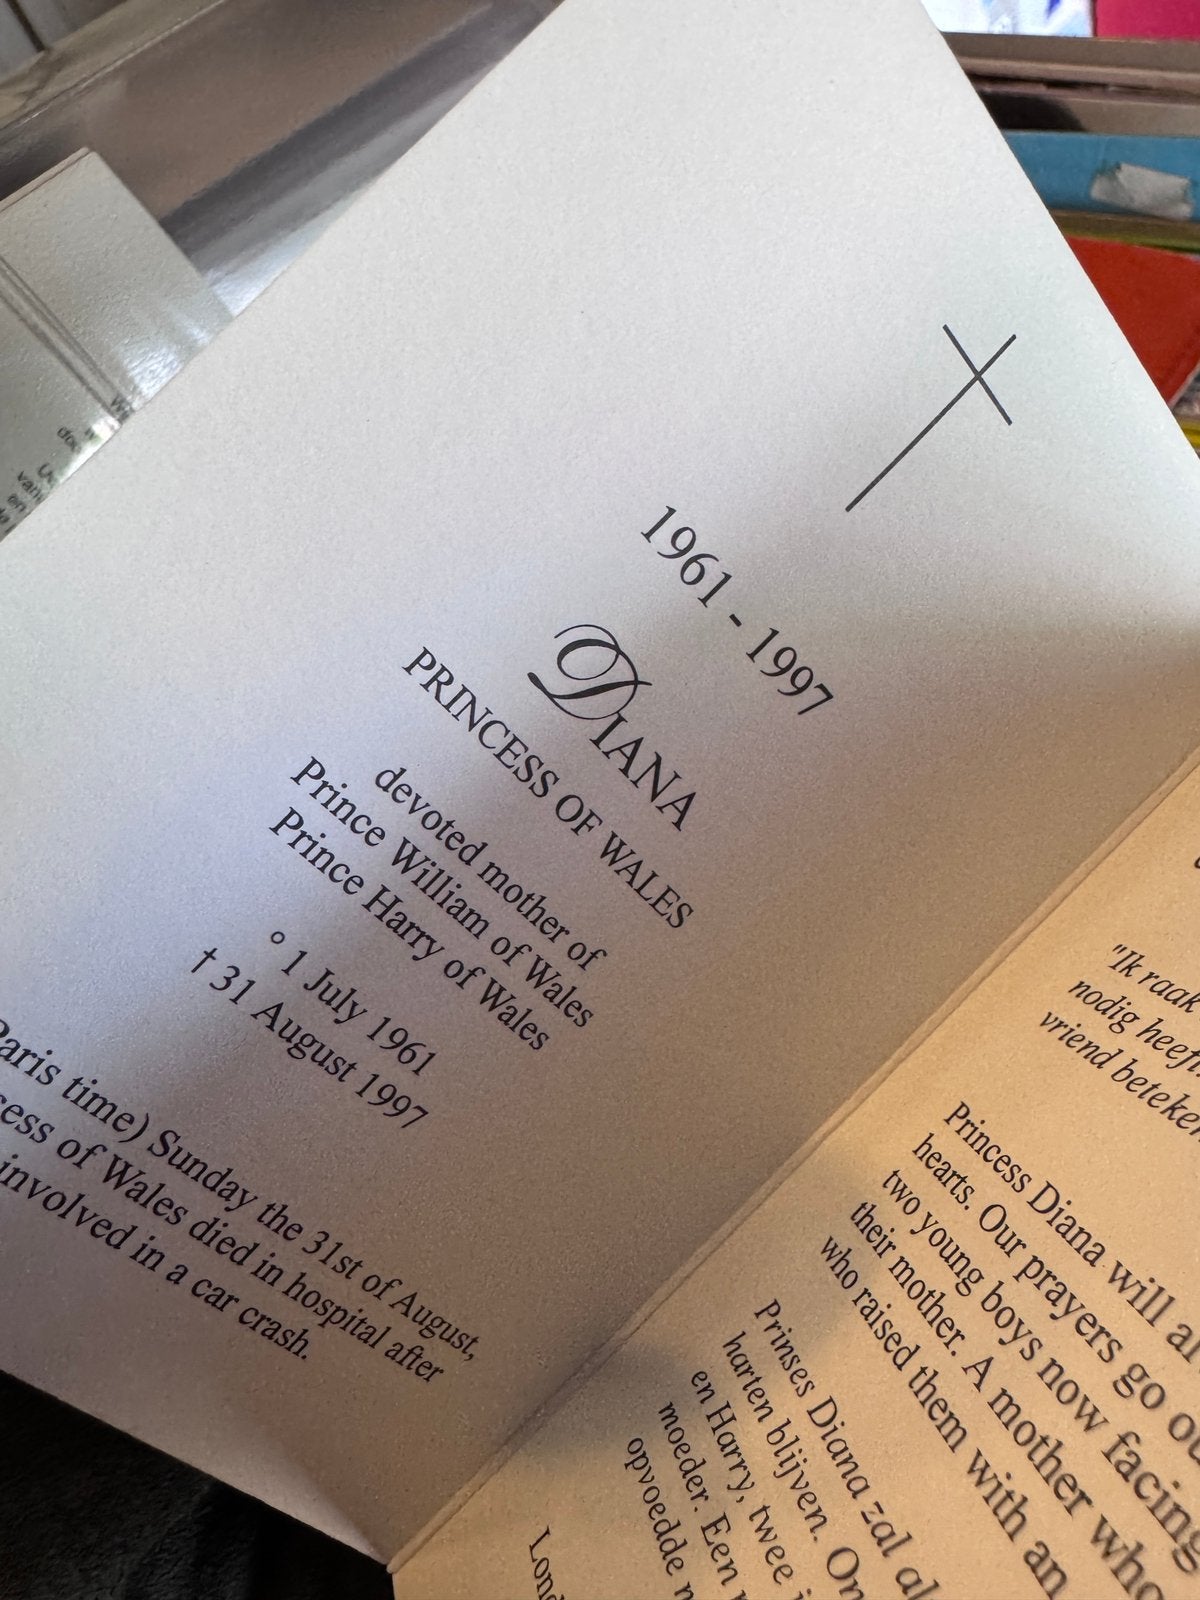 1961 - 1997
DIANA
PRINCESS OF WALES
devoted mother of
Prince William of Wales
Prince Harry of Wales
° 1 July 1961
† 31 August 1997
Paris time) Sunday the 31st of August,
of Wales died in hospital after
involved in a car crash.
"Ik raak
nodig heeft.
vriend
Princess Diana will
hearts. Our prayers go
two young boys now facing
their mother. A mother who
who raised them with an
Prinses Diana zal
harten blijven.
en Harry, twee
moeder. Een
opvoedde